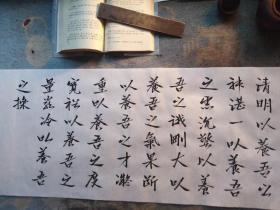 清明以養吾之
神湛一以養吾
之慮沉警以養
吾之識剛大以
養吾之氣果斷
以養吾之才凝
重以養吾之度
寬裕以養吾之
量嚴冷以養吾
之操